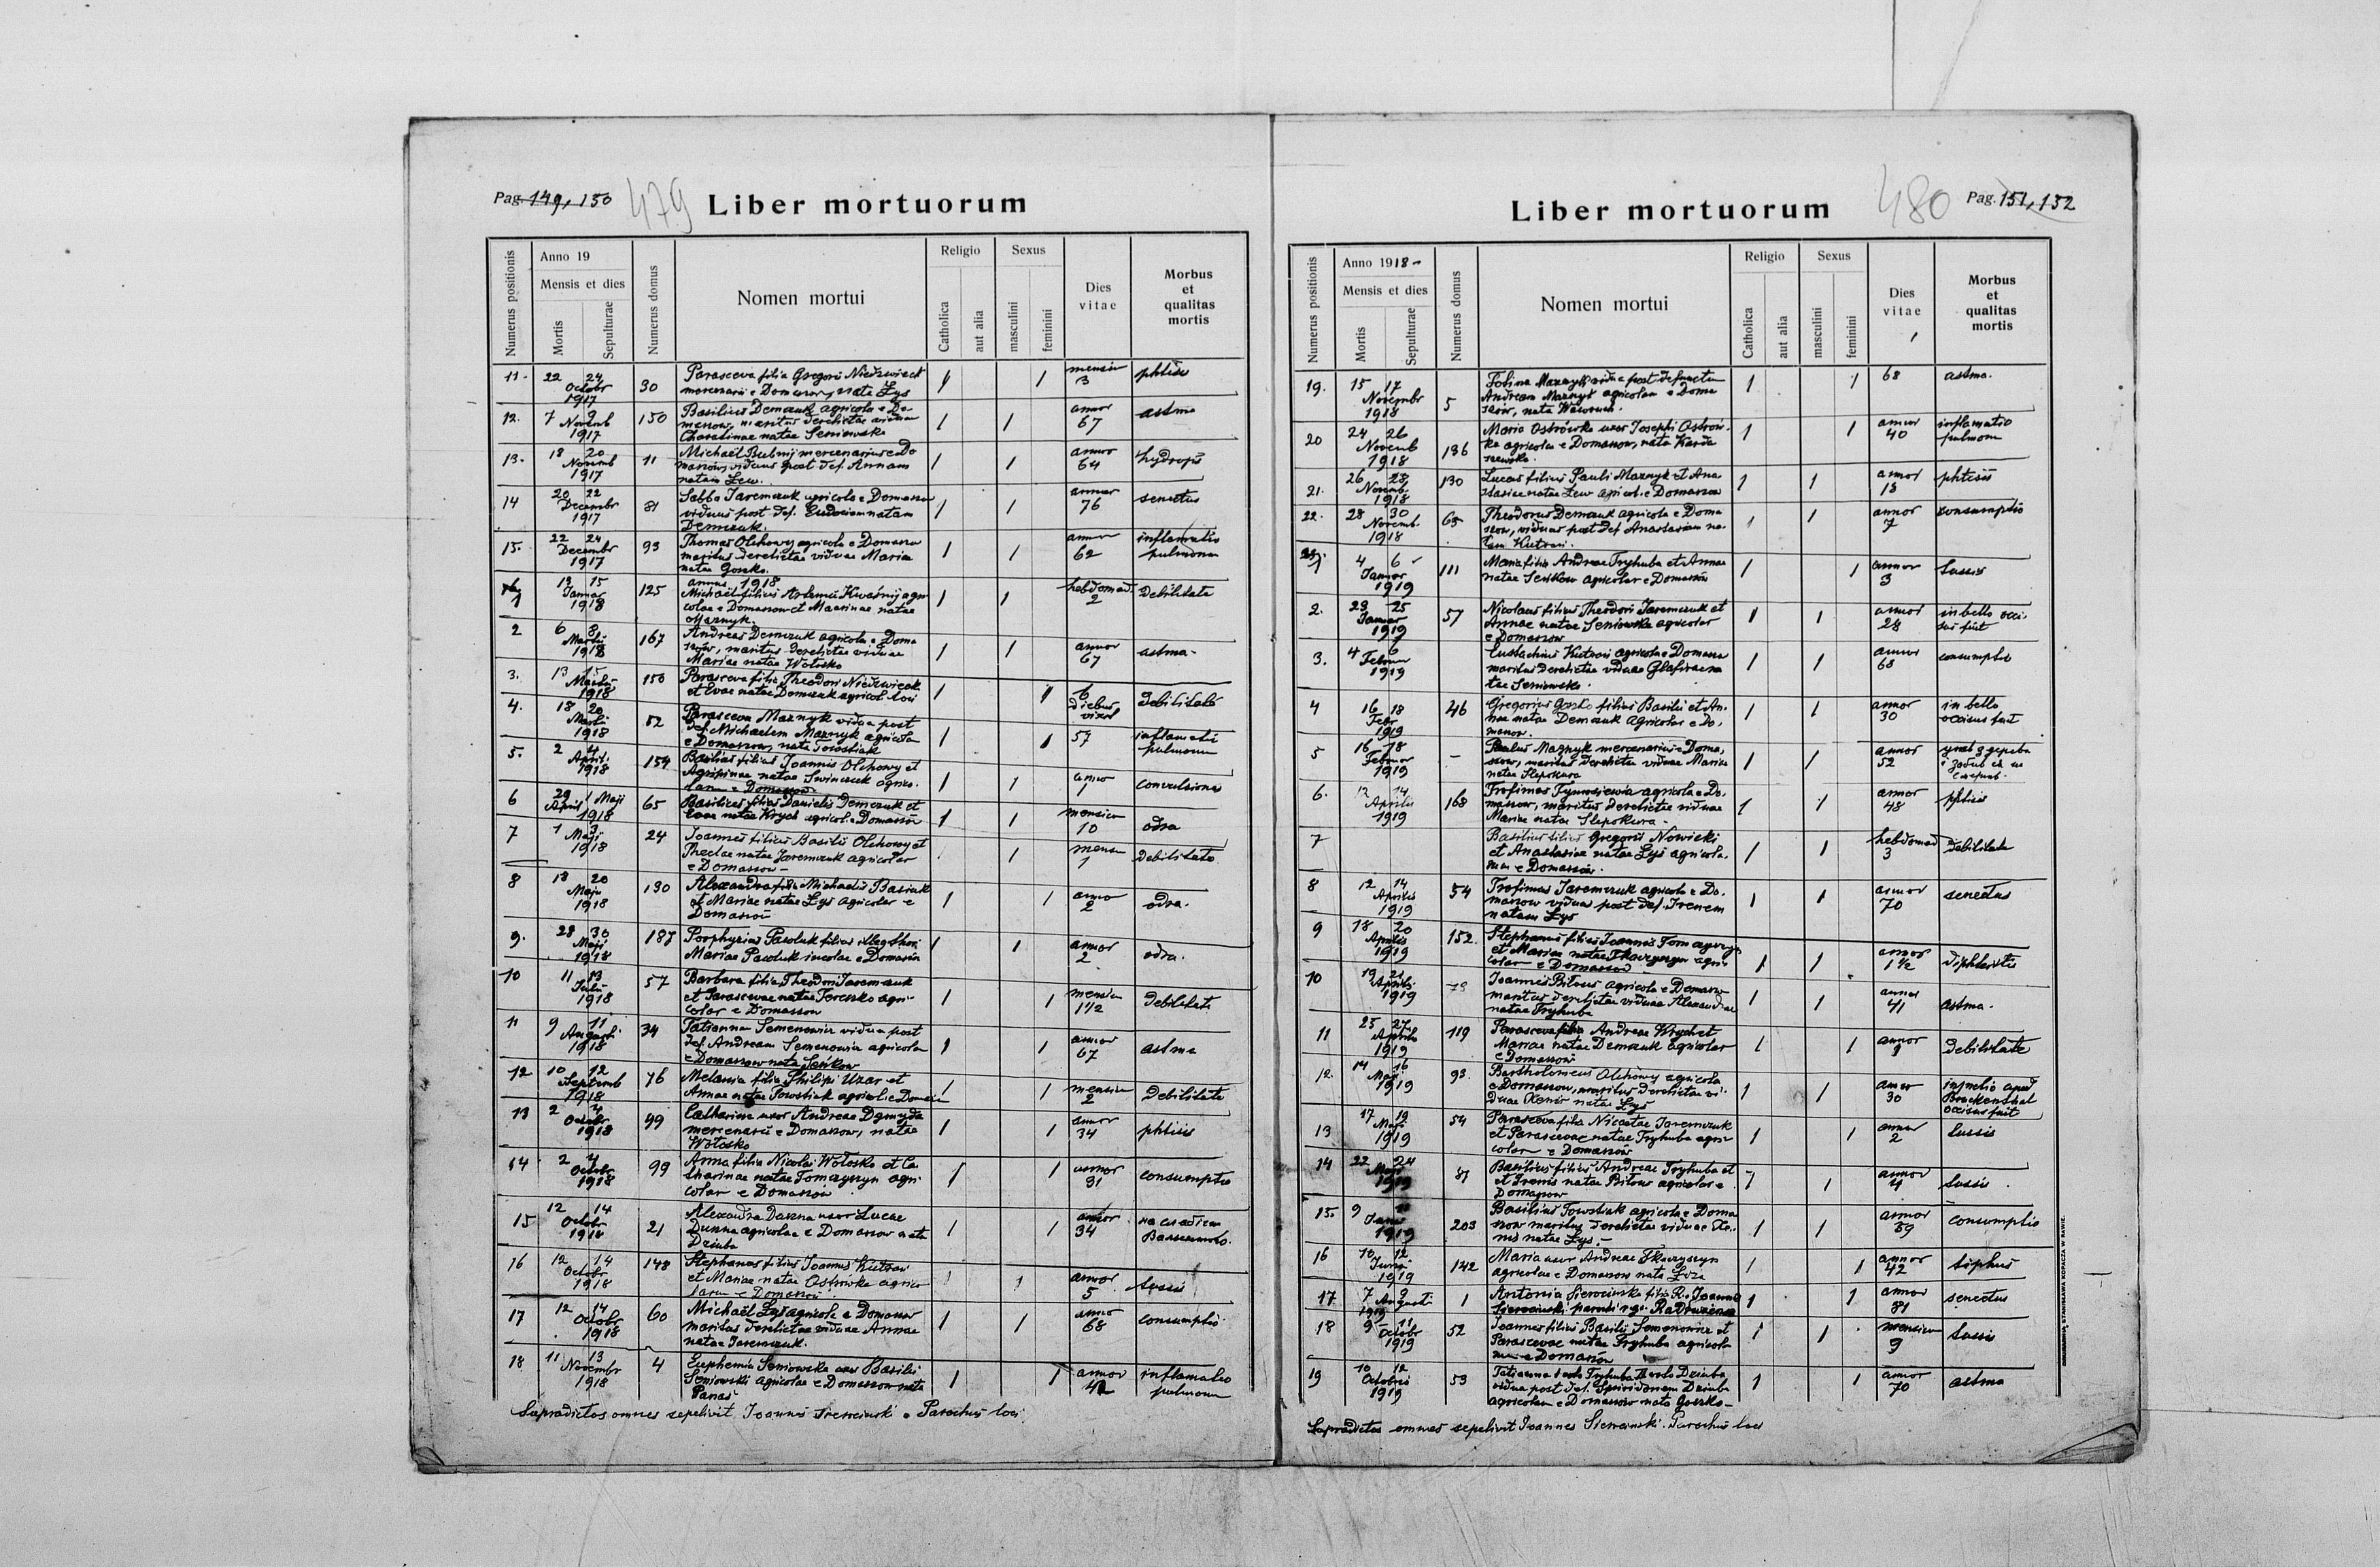 Pag. 149, 150
479
Liber mortuorum
Numerus positionis
Anno 19
Mensis et dies
Mortis
Sepulturae
Numerus domus
Nomen mortui
Religio
Catholica
aut alia
Sexus
masculini
feminini
Dies
vitae
Morbus
et
qualitas
mortis
11. 22 24 Octobr 1917 30 Parasceva filia Gregorii Niedzwieck 1 1 mensium 3 phtisis
mercenarii e Domaszow, nata Lys
12. 7 9 Novemb 1917 150 Basilius Demczuk agricola e Do- 1 1 annor 67 astma
maszow, maritus derelictae viduae
Charitinae natae Seniowska
13. 18 20 Novemb 1917 11 Michaël Bubnij mercenarius e Do 1 1 annor 64 hydrops
maszow, viduus post def. Annam
natam Lew.
14 20 22 Decembr 1917 81 Sabba Jaremczuk agricola e Domaszow 1 1 annor 76 senectus
viduus post def. Eudociam natam
Demczuk.
15. 22 24 Decembr 1917 93 Thomas Olchowy agricola e Domaszow 1 1 annor 62 inflamatio
maritus derelictae viduae Mariae pulmonum
natae Goszko.
annus 1918
1 13 15 Januar 1918 125 Michaël filius Artemii Kwasnij agri 1 1 hebdomad. 2 debilitate
colae e Domaszow et Macrinae natae
Maznyk.
2 6 8 Martii 1918 167 Andreas Demczuk agricola e Doma 1 1 annor 67 astma
szów, maritus derelictae viduae
Mariae natae Wołosko
3. 13 15 Martii 1918 150 Parasceva filia Theodori Niedzwiecok 1 1 6 diebus vixit debilitate
et Evae natae Demczuk agricol. loci
4. 18 20 Martii 1918 52 Parasceva Maznyk vidua post 1 1 57 inflamatio
def. Michaelem Maznyk agricola pulmonum
e Domaszow, nata Towstiak
5. 2 4 April. 1918 154 Basilius filius Joannis Olchowy et 1 1 anno 1 convulsiones
Agripinae natae Swinczuk agrico-
larum e Domaszow
6 29 April 1 Maji 1918 65 Basilius filius Danielis Demczuk et 1 1 mensium 10 odra
Evae natae Krych agricol. e Domaszów
7 1 3 Maji 1918 24 Joannes filius Basilii Olchowy et 1 mense 1 debilitate
Theclae natae Jaremczuk agricolar
e Domaszow
8 18 20 Maji 1918 130 Alexandra filia Michaelis Basiuk 1 1 anno 2 odra.
et Mariae natae Lys agricolar e
Domaszow
9. 28 30 Maji 1918 187 Porphyrius Pawluk filius illeg. thori 1 1 annor 2 odra.
Mariae Pawluk incolae e Domaszów
10 11 13 Julii 1918 57 Barbara filia Theodori Jaremczuk 1 1 mensium 1½ debilitate
et Parascevae natae Tereszko agri-
colar e Domaszow
11 9 11 Augusti 1918 34 Tatianna Semenowicz vidua post 1 1 annor 67 astma
def. Andream Semenowicz agricolam
e Domaszow nata Seńkow
12 10 12 Septemb 1918 76 Melania filia Philipi Uzar et 1 1 mensium 2 debilitate
Annae natae Towstiak agricol e Domaszow
13 2 4 Octobr 1918 99 Catharina uxor Andreae Dgmyda 1 1 annor 34 phtisis
mercenarii e Domaszow, natae
Wołosko
14 2 4 Octobr 1918 99 Anna filia Nicolai Wołosko et Ca 1 1 annor 31 consumptio
tharinae natae Tomczyszyn agri-
colar e Domaszow
15 12 14 Octobr 1918 21 Alexandra Dunna uxor Lucae 1 1 annor 34
Dunna agricolae e Domaszow nata
Dziuba
16 12 14 Octobr 1918 148 Stephanus filius Joannis Kutrow 1 1 annor 5 tussis
et Mariae natae Ostrówka agrico
larum e Domaszow
17 12 14 Octobr 1918 60 Michaël Lys agricola e Domaszow 1 1 anno 68 consumptio
maritus derelictae viduae Annae
natae Jaremczuk.
18 11 13 Novembr 1918 4 Euphemia Seniowska uxor Basilii 1 1 annor 42 inflamatio
Seniowski agricolae e Domaszow nata pulmonum
Panas
Supradictos omnes sepelivit Joannes Sierocinski Parochus loci
Liber mortuorum
480
Pag. 151, 152
Numerus positionis
Anno 1918-
Mensis et dies
Mortis
Sepulturae
Numerus domus
Nomen mortui
Religio
Catholica
aut alia
Sexus
masculini
feminini
Dies
vitae
Morbus
et
qualitas
mortis
19. 15 17 Novembr 1918 5 Maznyk vidua post defunctum 1 1 68 astma.
Andream Maznyk agricolam e Doma
szów, nata
20 24 26 Novemb 1918 136 Maria Ostrówka uxor Josephi Ostrow- 1 1 annor 40 inflamatio
ka agricolae e Domaszow, nata Karda pulmonum
szewska.
21. 26 28 Novemb. 1918 130 Lucas filius Pauli Maznyk et Ana 1 1 annor 13 phtisis
stasiae natae Lew agricol. e Domaszow
22. 28 30 Novemb. 1918 65 Theodorus Demczuk agricola e Doma 1 1 annor 7 consumptio
szow, viduus post def Anastasiam na-
tam Kutrow.
1 4 6 Januar 1919 111 Maria filia Andreae Tryhuba et Annae 1 1 annor 3 tussis
natae Seńkow agricolar e Domaszów
2. 23 25 Januar 1919 57 Nicolaus filius Theodori Jaremczuk et 1 1 annor 28 in bello occi-
Annae natae Seniowska agricolar sus fuit
e Domaszow
3. 4 6 Februar 1919 Eustachius Kutrow agricola e Domaszow 1 1 annor 68 consumptio
maritus derelictae viduae Glafirae na
tae Seniowska.
4 16 18 Febr 1919 46 Gregorius Goszko filius Basilii et An- 1 1 annor 30 in bello
nae natae Demczuk agricolar e Do- occisus fuit
maszow.
5 16 18 Februar 1919 - Paulus Maznyk mercenarius e Doma- 1 1 annor 52
szow, maritus derelictae viduae Mariae
natae Slepokura
6. 12 14 Aprilis 1919 168 Trofimus Tymosiewicz agricola e Do- 1 1 annor 48 phtisis
maszow, maritus derelictae viduae
Mariae natae Slepokura.
7 Basilius filius Gregorii Nowicki 1 1 hebdomad 3 debilitate
et Anastasiae natae Lys agricola-
rum e Domaszów.
8 12 14 Aprilis 1919 54 Trofimus Jaremczuk agricola e Do- 1 1 annor 70 senectus
maszow viduus post def. Irenem
natam Lys
9 18 20 Aprilis 1919 152. Stephanus filius Joannis Tomczyszyn 1 1 annor 1½ diphteritis
et Mariae natae Tkaczyszyn agri-
colar e Domaszow
10 19 21 Aprilis 1919 Joannes Bilous agricola e Domaszow 1 1 annor 41 astma.
maritus derelictae viduae Alexandrae
natae Tryhuba
11 25 27 Aprilis 1919 119 Parasceva filia Andreae Krych et 1 1 annor debilitate
Mariae natae Demczuk agricolar
e Domaszow
12. 14 16 Maji 1919 93. Bartholomeus Olchowy agricola 1 1 annor 30 in proelio apud
e Domaszow, maritus derelictae vi- Brockenthal
duae Xeniae natae Lys occisus fuit
13 17 19 Maji 1919 54 Parasceva filia Nicetae Jaremczuk 1 1 annor 2 tussis
et Parascevae natae Tryhuba agri-
colar e Domaszów
14 22 24 Maji 1919 81 Basilius filius Andreae Tryhuba et 1 1 annor 4 tussis.
et Irenis natae Bilous agricolar e
Domaszow
15. 9 11 Junii 1919 203 Basilius Towstiak agricola e Doma 1 1 annor 39 consumptio
szow maritus derelictae viduae Xe-
nis natae Lys.-
16 10 12 Junii 1919 142 Maria uxor Andreae Tkaczyszyn 1 1 annor 42 tiphus
agricolae e Domaszow nata
17 7 9 Augusti 1919 1 Antonia Sierocinska filia R. Joannis 1 1 annor 81 senectus
Sierocinski parochi
18 9 11 Octobr 1919 52 Joannes filius Basilii Semenowicz et 1 1 mensium 9 tussis
Parascevae natae Tryhuba agricola-
rum e Domaszów
19 10 12 Octobris 1919 53 Tatianna Tryhuba Dziuba 1 1 annor 70 astma
vidua post def. Spiridonem Dziuba
agricolam e Domaszow nata Goszko-
Supradictos omnes sepelivit Joannes Sierocinski. Parochus loci
DRUKARNIA STANISŁAWA KOPACZA W RAWIE.